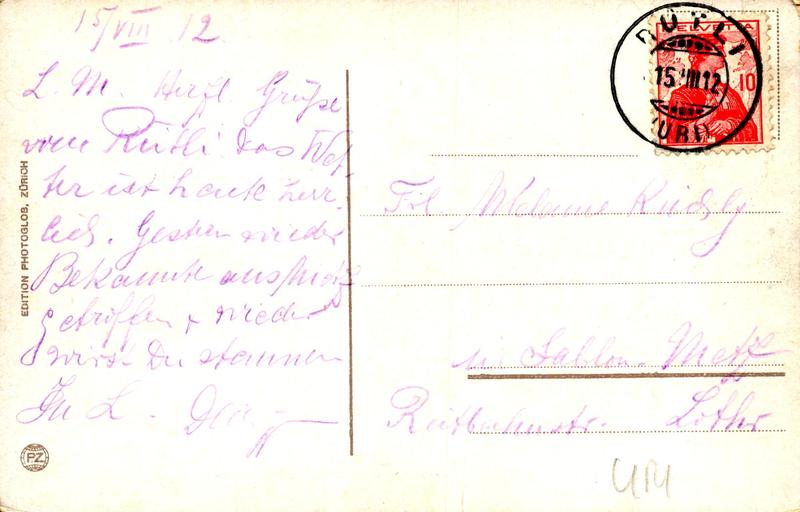 15/VIII 12.
L. M. Herzl. Grüße
vom Rütli das Wet-
ter ist heute herr-
lich. Gestern wieder
Bekannte aus Metz
getroffen + wieder
wirst Du staunen
In L.
EDITION PHOTOGLOB, ZÜRICH
PZ
RÜTLI
15.VIII.12
(URI)
HELVETIA
10
Frl Melanie
in Sablon-Metz
Lothr